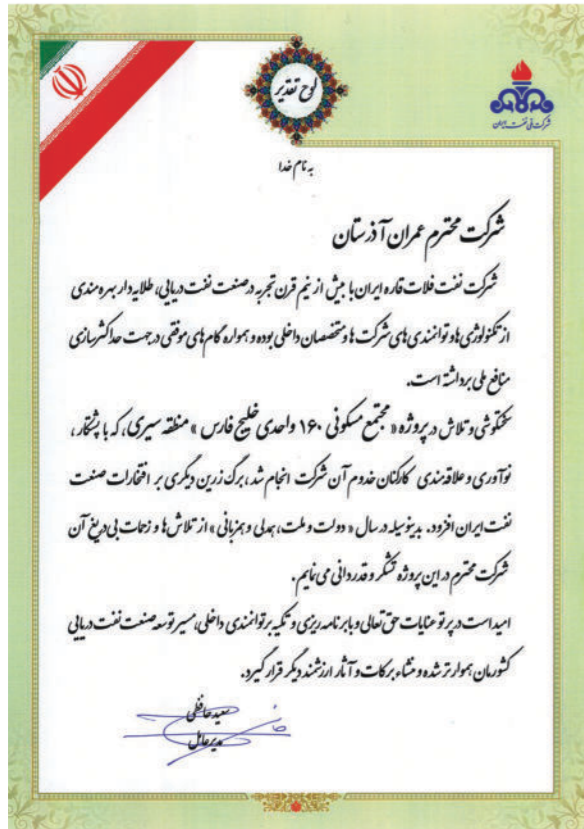 لوح تقدیر
شرکت ملی نفت ایران
به نام خدا
شرکت محترم عمران آذرستان
شرکت نفت فلات قاره ایران با بیش از نیم قرن تجربه در صنعت نفت دریایی، طلایه دار بهره مندی
از تکنولوژی ها و توانمندی های شرکت ها و متخصصان داخلی بوده و همواره گام های موفقی در جهت حداکثرسازی
منافع ملی برداشته است.
سختکوشی و تلاش در پروژه « مجتمع مسکونی ۱۶۰ واحدی خلیج فارس » منطقه سیری، که با پشتکار ،
نوآوری و علاقه مندی کارکنان خدوم آن شرکت انجام شد، برگ زرین دیگری بر افتخارات صنعت
نفت ایران افزود. بدینوسیله در سال « دولت و ملت، همدلی و همزبانی » از تلاش ها و زحمات بی دریغ آن
شرکت محترم در این پروژه تشکر و قدردانی می نمایم.
امید است در پرتو عنایات حق تعالی و با برنامه ریزی و تکیه بر توانمندی داخلی، مسیر توسعه صنعت نفت دریایی
کشورمان هموارتر شده و منشاء برکات و آثار ارزشمند دیگر قرار گیرد.
سعید حافظی
مدیرعامل